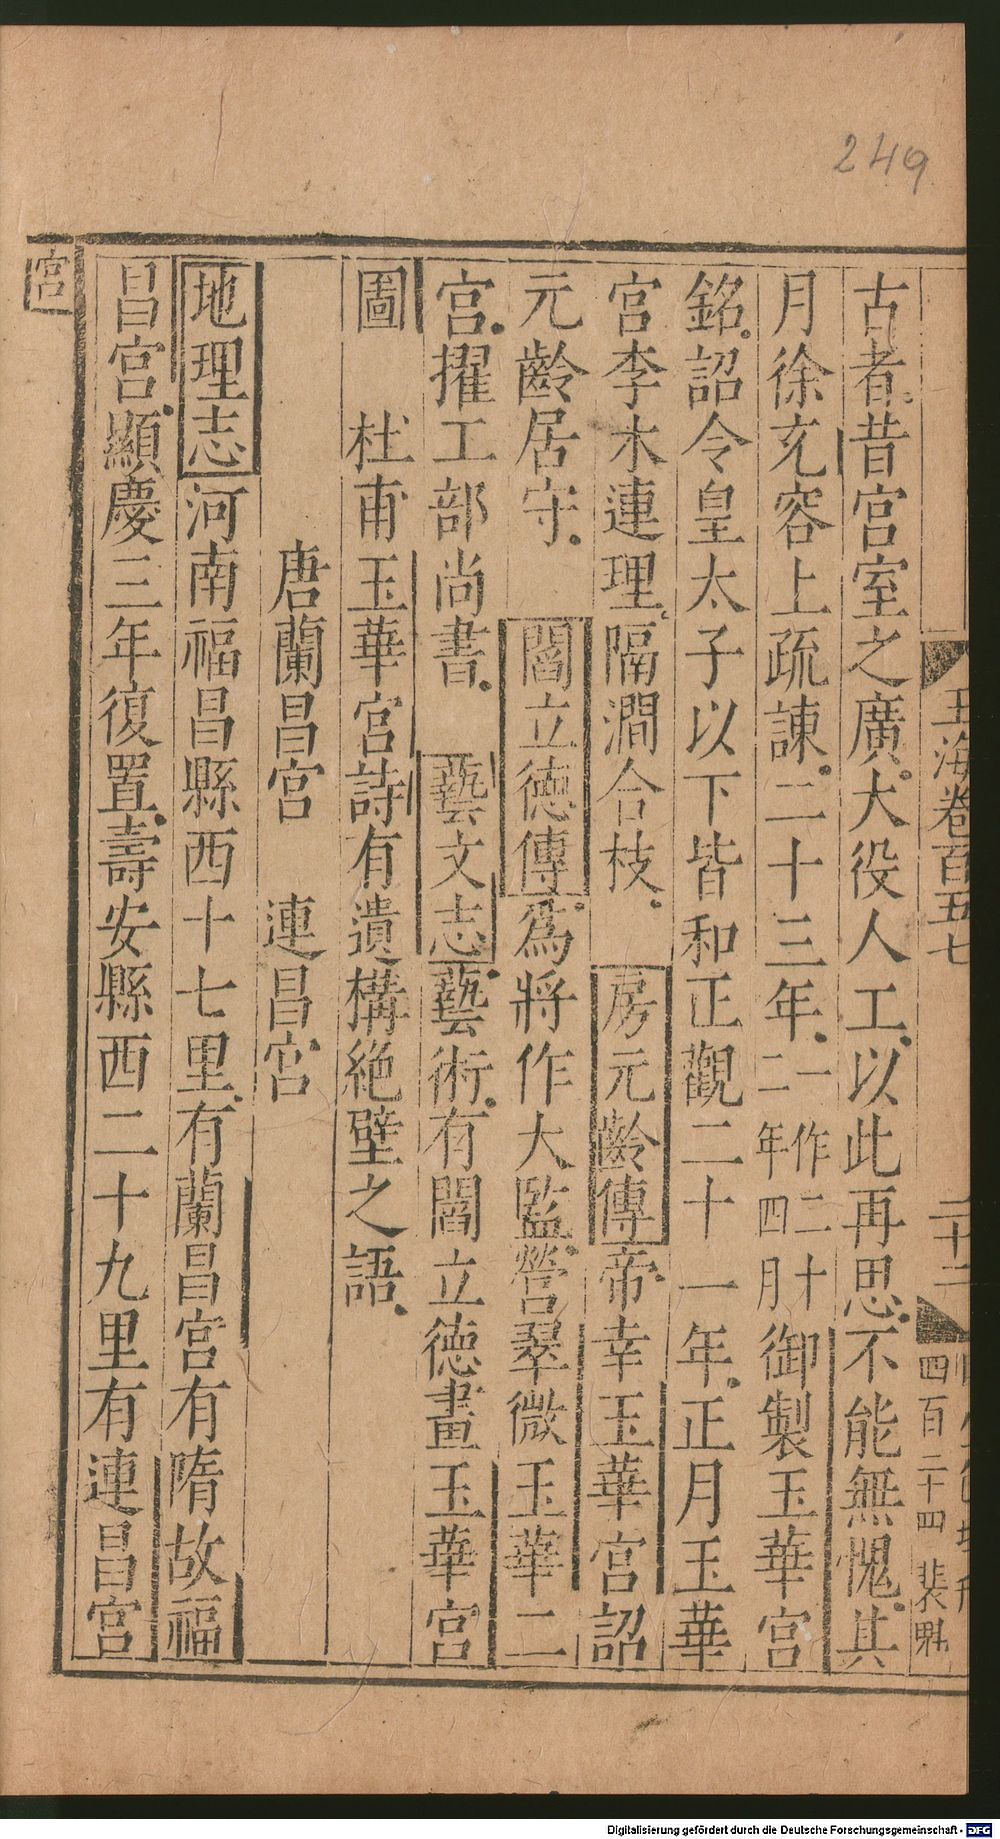 249
玉海卷百五七
二十二
四百二十四 裴魁
古者昔宮室之廣大役人工以此再思不能無愧其
月徐充容上疏諫二十三年一作二十二年四月御製玉華宮
銘詔令皇太子以下皆和正觀二十一年正月玉華
宮李木連理隔澗合枝 房元齡傳帝幸玉華宮詔
元齡居守 閻立德傳為將作大監營翠微玉華二
宮擢工部尚書 藝文志藝術有閻立德畫玉華宮
圖 杜甫玉華宮詩有遺構絶壁之語
唐蘭昌宮 連昌宮
地理志河南福昌縣西十七里有蘭昌宮有隋故福
昌宮顯慶三年復置壽安縣西二十九里有連昌宮
宮
Digitalisierung gefördert durch die Deutsche Forschungsgemeinschaft - DFG